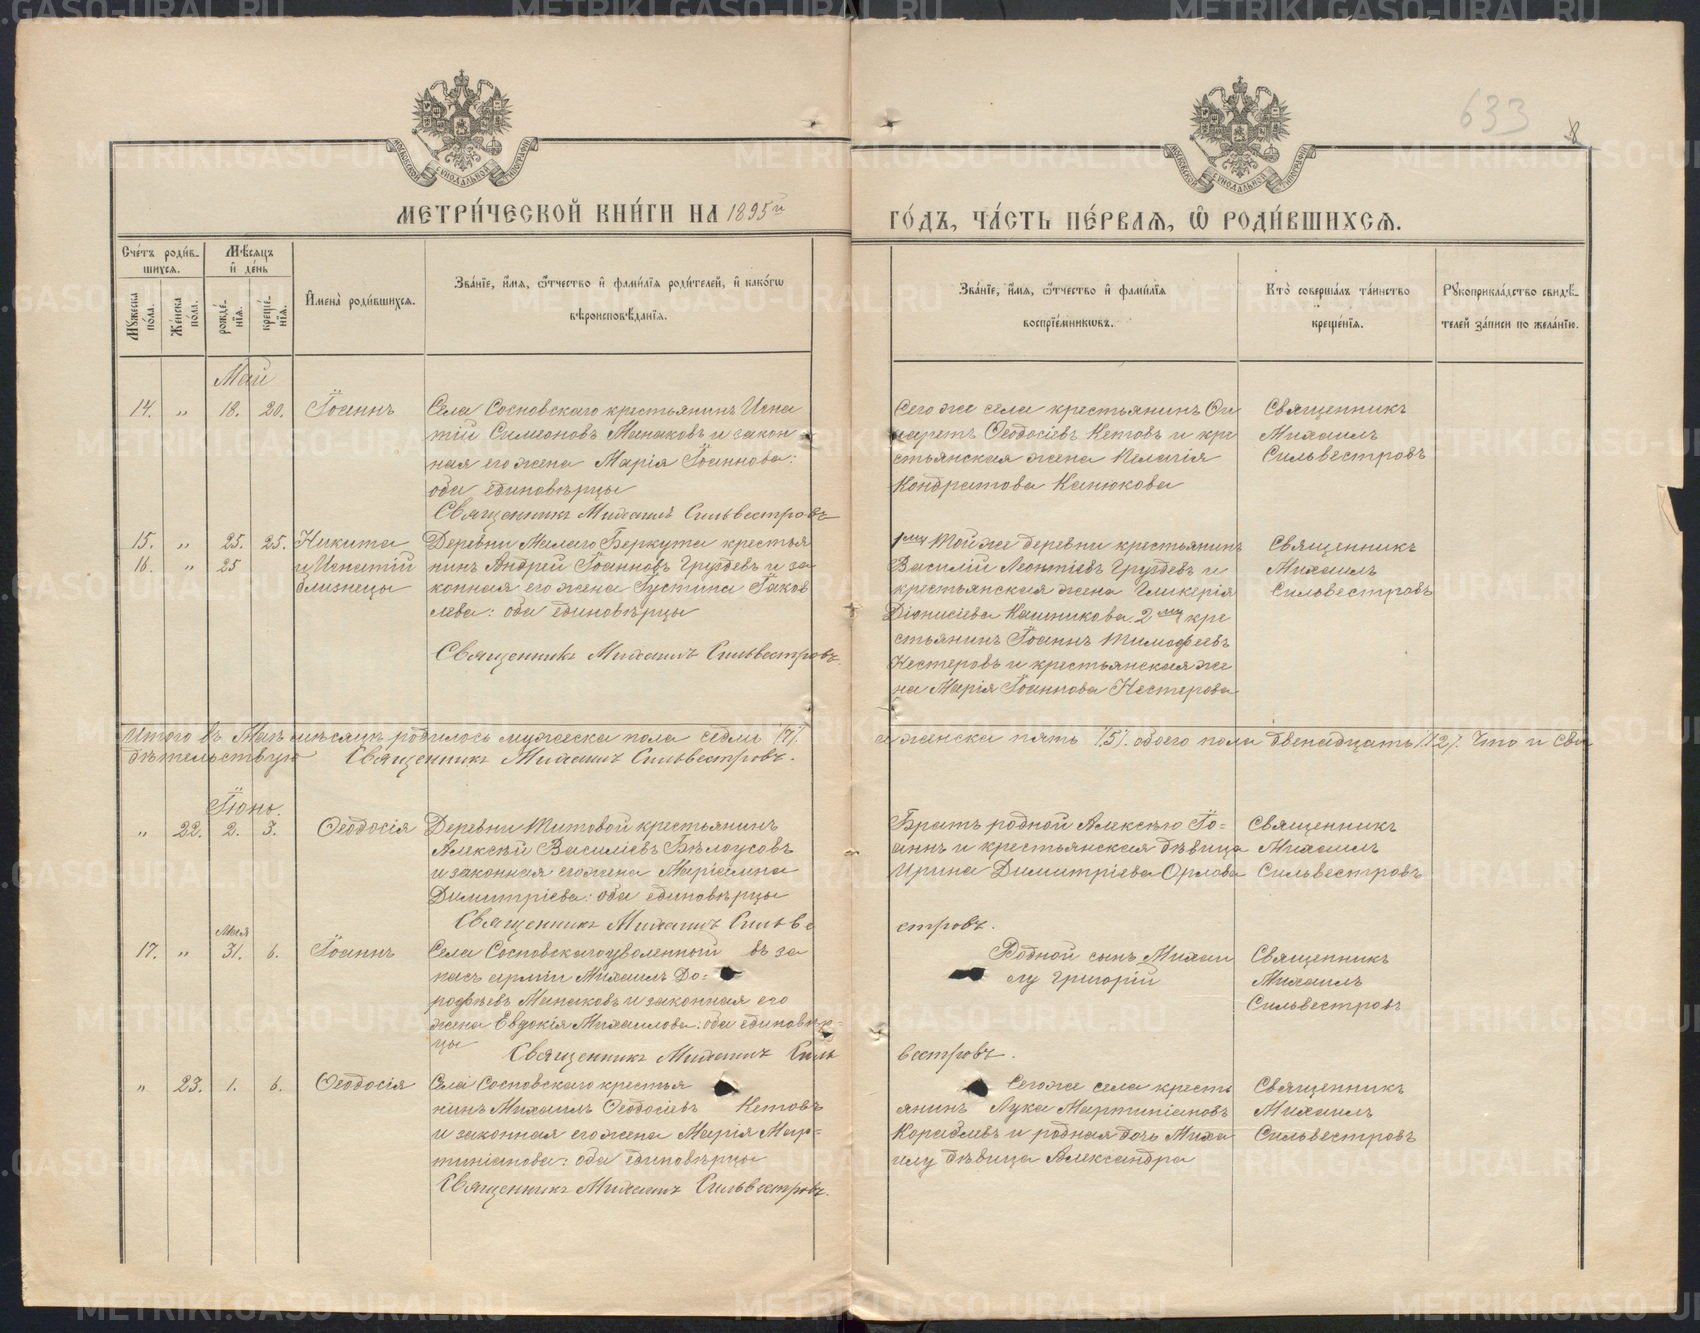 METRIKI.GASO-URAL.RU
633
8
МОСКОВСКОЙ СѴНОДАЛЬНОЙ ТИПОГРАФІИ
МОСКОВСКОЙ СѴНОДАЛЬНОЙ ТИПОГРАФІИ
МЕТРИ́ЧЕСКОЙ КНИ́ГИ НА 1895й
ГО́ДЪ, ЧА́СТЬ ПЕ́РВАЯ, Ѡ҆ РОДИ́ВШИХСЯ.
Сче́тъ роди́в-
шихся.
Мѣсяцъ
и҆ де́нь
Мꙋжеска по́ла.
Же́нска по́ла.
рожде́нїя.
креще́нїя.
И҆мена̀ роди́вшихся.
Зва́нїе, и҆́мя, ѻ҆́тчество и҆ фами́лїя роди́телей, и҆ како́гѡ
вѣроисповѣ́данїя.
Зва́нїе, и҆́мя, ѻ҆́тчество и҆ фами́лїя
воспрїе́мникѡвъ.
Кто̀ соверша́лъ та́инство
креще́нїя.
Рꙋкоприкла́дство свидѣ́-
телей за́писи по жела́нїю.
Май
14. „ 18. 20. Іоаннъ
Села Сосновскаго крестьянинъ Игна
тій Симеоновъ Манаковъ и закон
ная его жена Марія Іоаннова:
оба единовѣрцы
Священникъ Михаилъ Сильвестровъ
Сего же села крестьянинъ Фи
ларетъ Ѳеодосіевъ Кетовъ и кре
стьянская жена Пелагія
Кондратова Канюкова
Священникъ
Михаилъ
Сильвестровъ
15. „ 25. 25. Никита
16. „ 25 и Игнатій
близнецы
Деревни Малаго Беркута крестья
нинъ Андрей Іоанновъ Груздевъ и за
конная его жена Іустина Іаков
лева: оба единовѣрцы
Священникъ Михаилъ Сильвестровъ.
1му Той же деревни крестьянинъ
Василій Леонтіевъ Груздевъ и
крестьянская жена Гликерія
Діонисіева Кашникова. 2му кре
стьянинъ Іоаннъ Тимофеевъ
Нестеровъ и крестьянская же
на Марія Іоаннова Нестерова
Священникъ
Михаилъ
Сильвестровъ
Итого въ Маѣ мѣсяцѣ родилось мужеска пола седмь /7/. и женска пять /5/. обоего пола двенадцать /12/. Что и сви
дѣтельствую Священникъ Михаилъ Сильвестровъ.
Іюнь.
„ 22. 2. 3. Ѳеодосія
Деревни Титовой крестьянинъ
Алексѣй Василіевъ Бѣлоусовъ
и законная его жена Маріамна
Димитріева: оба единовѣрцы
Священникъ Михаилъ Сильве
стровъ.
Братъ родной Алексѣю Іо=
аннъ и крестьянская дѣвица
Ирина Димитріева Орлова
Священникъ
Михаилъ
Сильвестровъ
Мая
17. „ 31. 6. Іоаннъ
Села Сосновскаго уволенный въ за
пасъ арміи Михаилъ До=
роѳѣевъ Манаковъ и законная его
жена Евдокія Михаилова: оба единовѣр=
цы
Священникъ Михаилъ Силь
вестровъ.
Родной сынъ Михаи
лу Григорій
Священникъ
Михаилъ
Сильвестровъ
„ 23. 1. 6. Ѳеодосія
Села Сосновскаго крестья
нинъ Михаилъ Ѳеодосіевъ Кетовъ
и законная его жена Марія Мар=
тиніанова: оба единовѣрцы
Священникъ Михаилъ Сильвестровъ.
Сего же села кресть
янинъ Лука Мартиніановъ
Кораблевъ и родная дочь Миха
илу дѣвица Александра
Священникъ
Михаилъ
Сильвестровъ